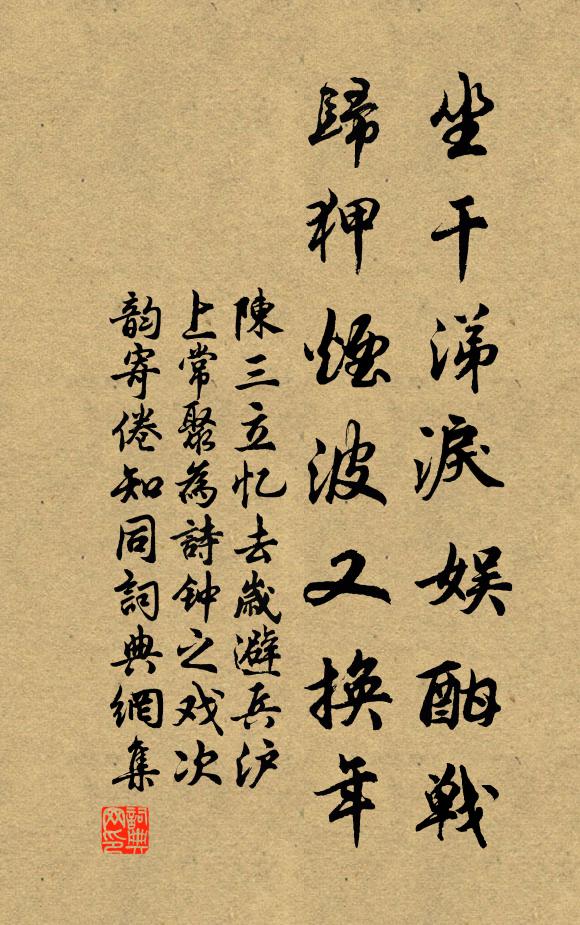 坐干涕淚娱酣戦
歸狎煙波又换年
陳三立忆去歲避兵沪
上常聚為詩钟之戏次
韵寄倦知同詞典網集
詞典網印